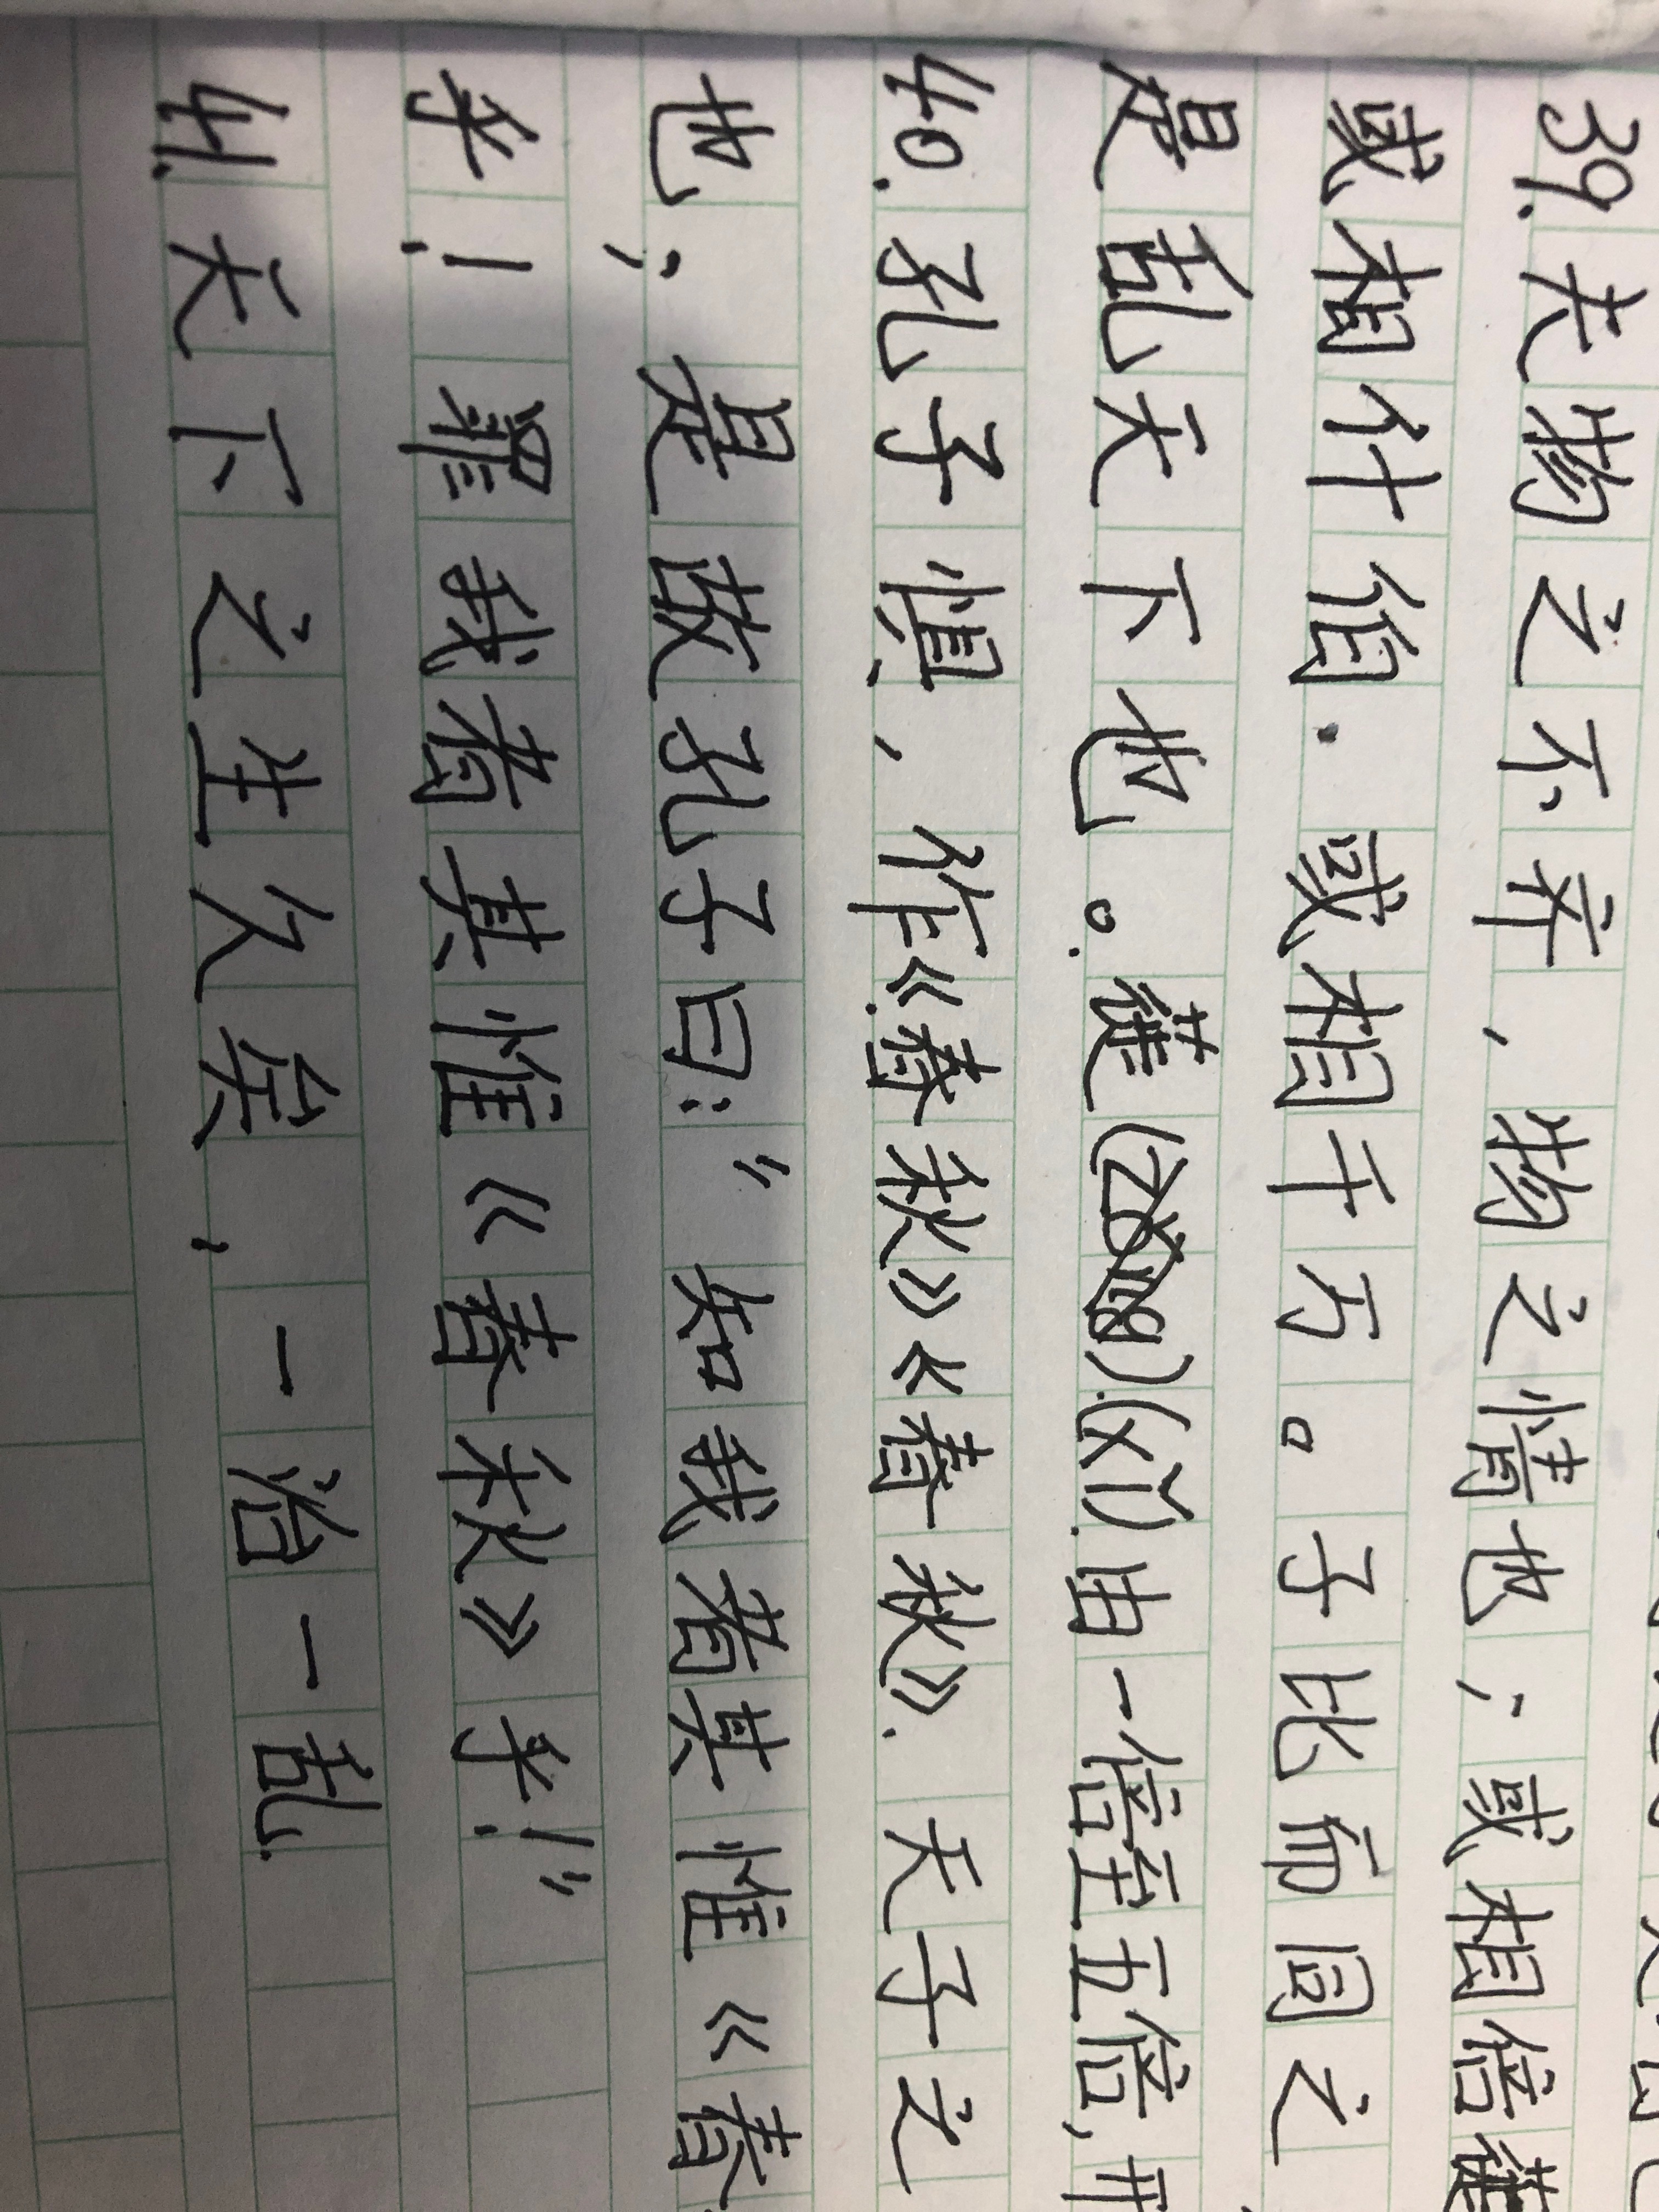 39.夫物之不齐,物之情也;或相倍蓰
或相什佰.或相千万。子比而同之
是乱天下也。蓰(xǐ).由一倍至五倍,
40.孔子惧,作《春秋》《春秋》.天子之
也;是故孔子曰:"知我者其惟《春
乎!罪我者其惟《春秋》乎!"
41.天下之生久矣,一治一乱.